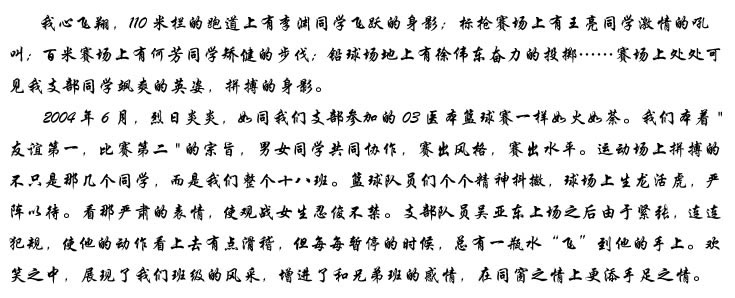 我心飞翔，110米栏的跑道上有李渊同学飞跃的身影；标枪赛场上有王亮同学激情的吼
叫；百米赛场上有何芳同学矫健的步伐；铅球场地上有徐伟东奋力的投掷……赛场上处处可
见我支部同学飒爽的英姿，拼搏的身影。
2004年6月，烈日炎炎，如同我们支部参加的03医本篮球赛一样如火如荼。我们本着"
友谊第一，比赛第二"的宗旨，男女同学共同协作，赛出风格，赛出水平。运动场上拼搏的
不只是那几个同学，而是我们整个十八班。篮球队员们个个精神抖擞，球场上生龙活虎，严
阵以待。看那严肃的表情，使观战女生忍俊不禁。支部队员吴亚东上场之后由于紧张，连连
犯规，使他的动作看上去有点滑稽，但每每暂停的时候，总有一瓶水“飞”到他的手上。欢
笑之中，展现了我们班级的风采，增进了和兄弟班的感情，在同窗之情上更添手足之情。